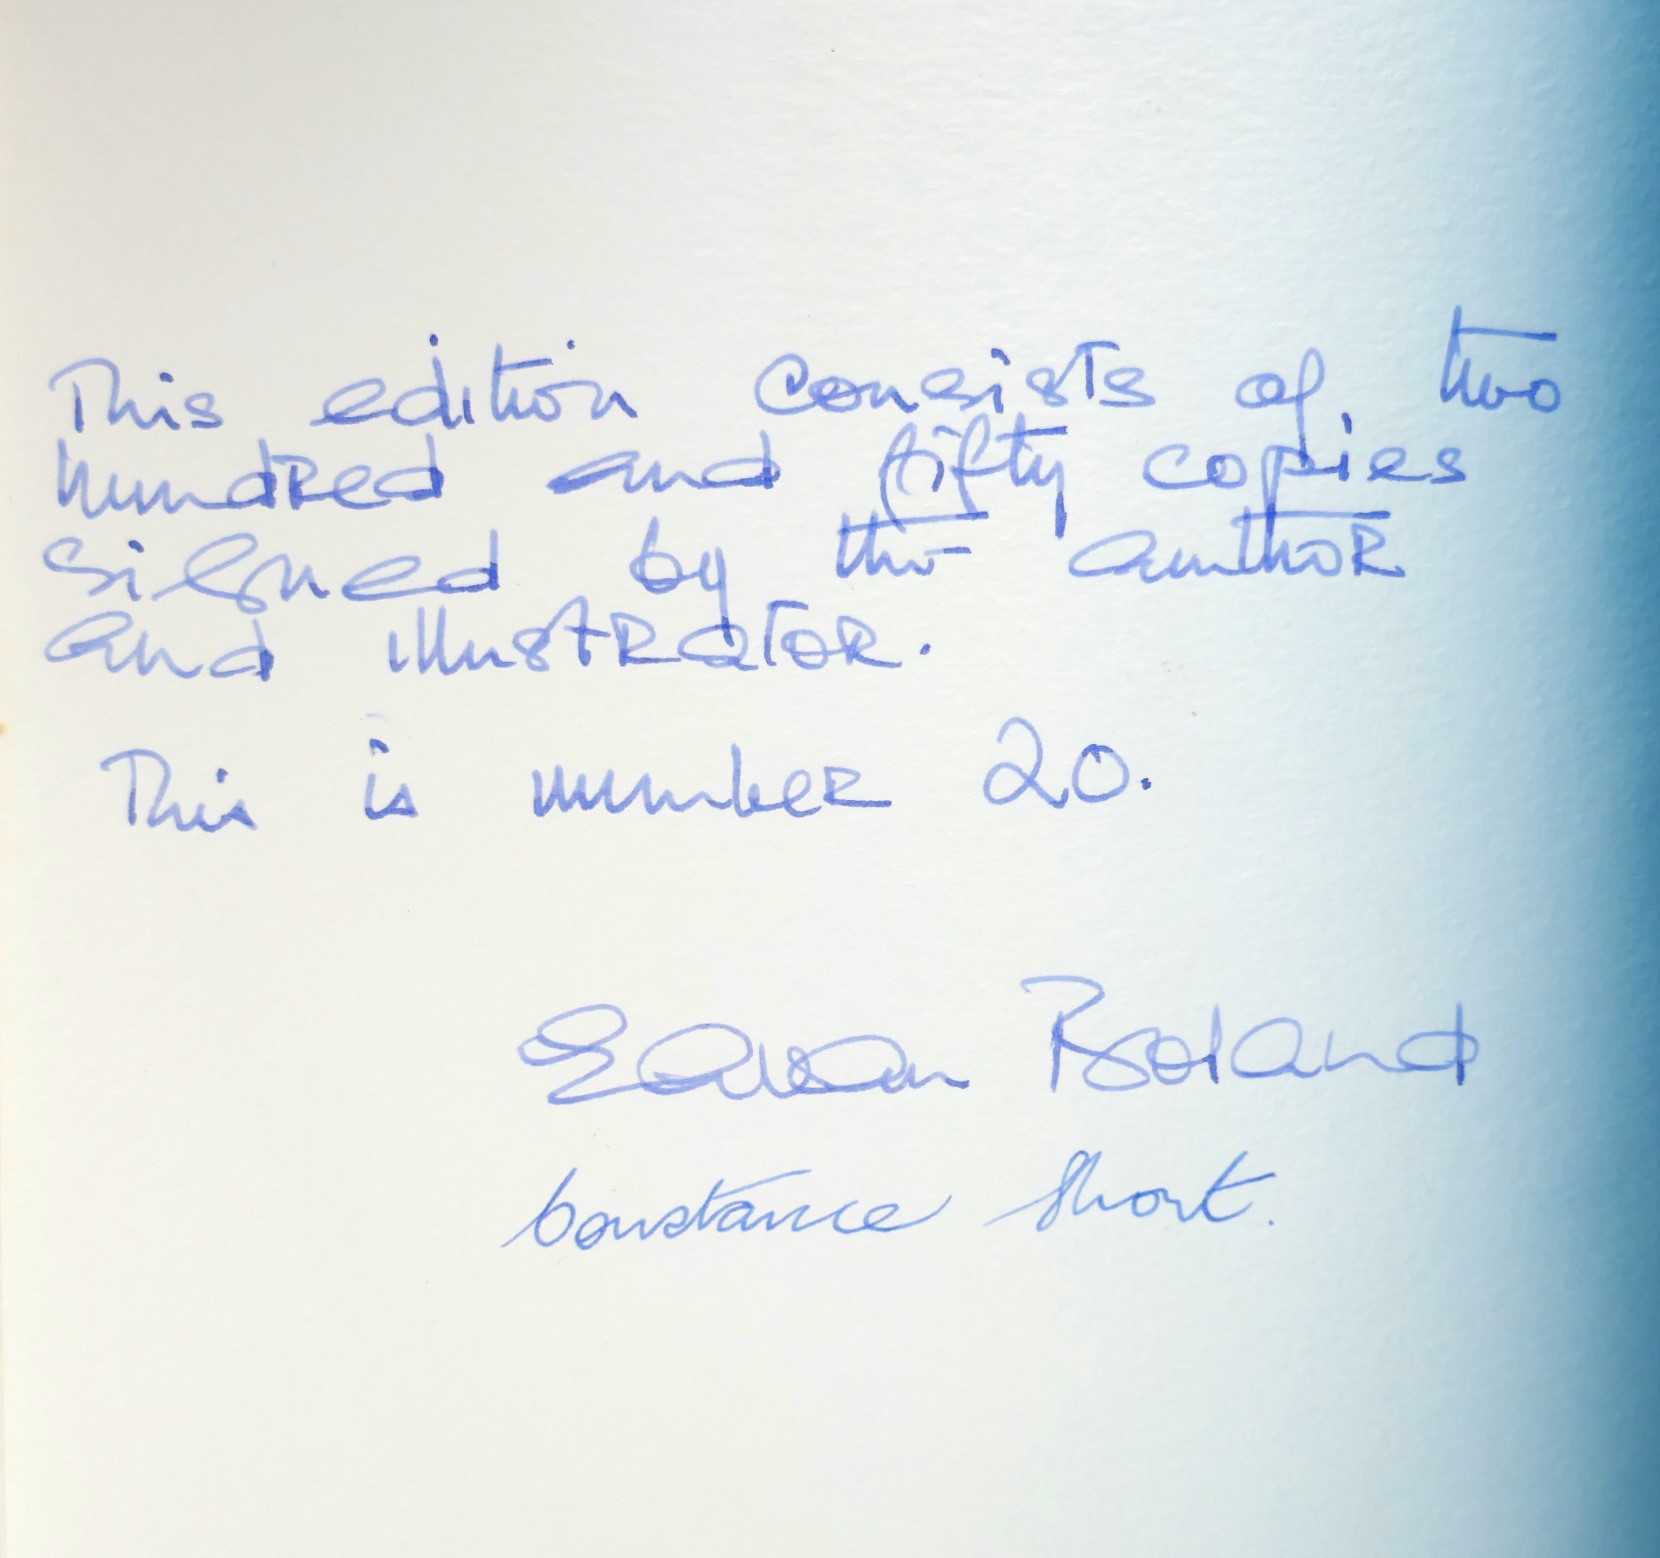 This edition consists of two
hundred and fifty copies
signed by the author
and illustrator.
This is number 20.
Eavan Boland
Constance Short.